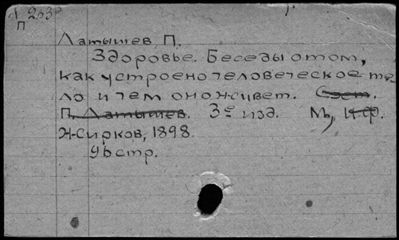 П
Латышев П.
Здоровье. Беседы о том,
как устроено человеческое те
ло и чем оно живет. Сост.
П. Латышев. 3-е изд. М,
Н. Жирков, 1898.
96 стр.